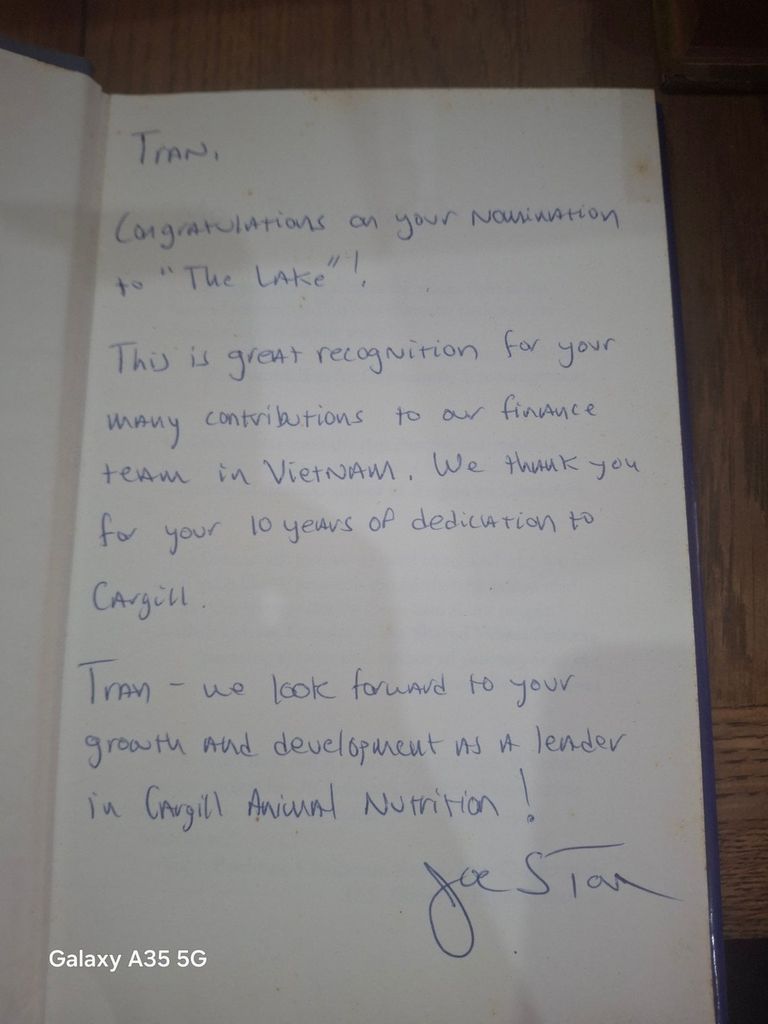 Tran,
Congratulations on your nomination
to "The Lake"!
This is great recognition for your
many contributions to our finance
team in Vietnam. We thank you
for your 10 years of dedication to
Cargill.
Tran - we look forward to your
growth and development as a leader
in Cargill Animal Nutrition!
Joe
Galaxy A35 5G